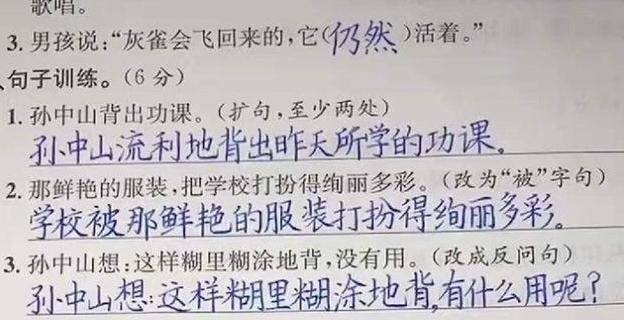 歌唱。
3. 男孩说：“灰雀会飞回来的，它(仍然)活着。”
、句子训练。（6 分）
1. 孙中山背出功课。（扩句，至少两处）
孙中山流利地背出昨天所学的功课。
2. 那鲜艳的服装，把学校打扮得绚丽多彩。（改为“被”字句）
学校被那鲜艳的服装打扮得绚丽多彩。
3. 孙中山想：这样糊里糊涂地背，没有用。（改成反问句）
孙中山想：这样糊里糊涂地背，有什么用呢？